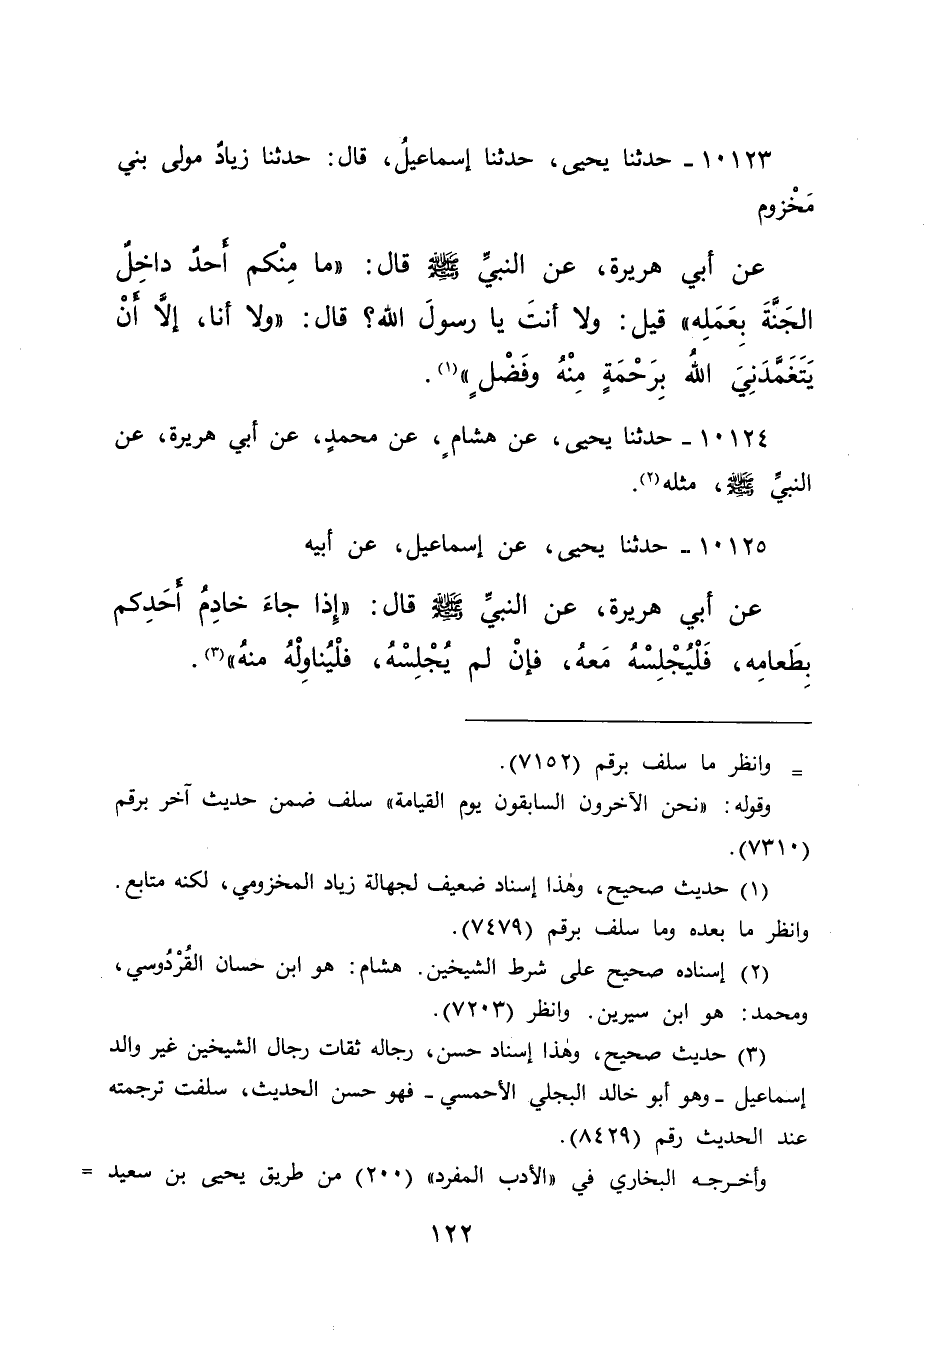 ١٠١٢٣ - حدثنا يحيى، حدثنا إسماعيلُ، قال: حدثنا زيادٌ مولى بني
مَخْزوم
عن أبي هريرة، عن النبيِّ ﷺ قال: «ما مِنْكم أَحدٌ داخِلٌ
الجَنَّةَ بِعَمَلِه» قيل: ولا أنتَ يا رسولَ الله؟ قال: «ولا أنا، إلَّا أَنْ
يَتَغَمَّدَنِيَ اللهُ بِرَحْمَةٍ مِنْهُ وفَضْلٍ»(١).
١٠١٢٤ - حدثنا يحيى، عن هشامٍ، عن محمدٍ، عن أبي هريرة، عن
النبيِّ ﷺ، مثله(٢).
١٠١٢٥ - حدثنا يحيى، عن إسماعيل، عن أبيه
عن أبي هريرة، عن النبيِّ ﷺ قال: «إِذا جاءَ خادِمُ أَحَدِكم
بِطَعامِه، فَلْيُجْلِسْهُ مَعهُ، فإنْ لم يُجْلِسْهُ، فلْيُناوِلْهُ منهُ»(٣).
= وانظر ما سلف برقم (٧١٥٢).
وقوله: «نحن الآخرون السابقون يوم القيامة» سلف ضمن حديث آخر برقم
(٧٣١٠).
(١) حديث صحيح، وهٰذا إسناد ضعيف لجهالة زياد المخزومي، لكنه متابع.
وانظر ما بعده وما سلف برقم (٧٤٧٩).
(٢) إسناده صحيح على شرط الشيخين. هشام: هو ابن حسان القُرْدُوسي،
ومحمد: هو ابن سيرين. وانظر (٧٢٠٣).
(٣) حديث صحيح، وهٰذا إسناد حسن، رجاله ثقات رجال الشيخين غير والد
إسماعيل - وهو أبو خالد البجلي الأحمسي - فهو حسن الحديث، سلفت ترجمته
عند الحديث رقم (٨٤٢٩).
وأخرجه البخاري في «الأدب المفرد» (٢٠٠) من طريق يحيى بن سعيد =
١٢٢